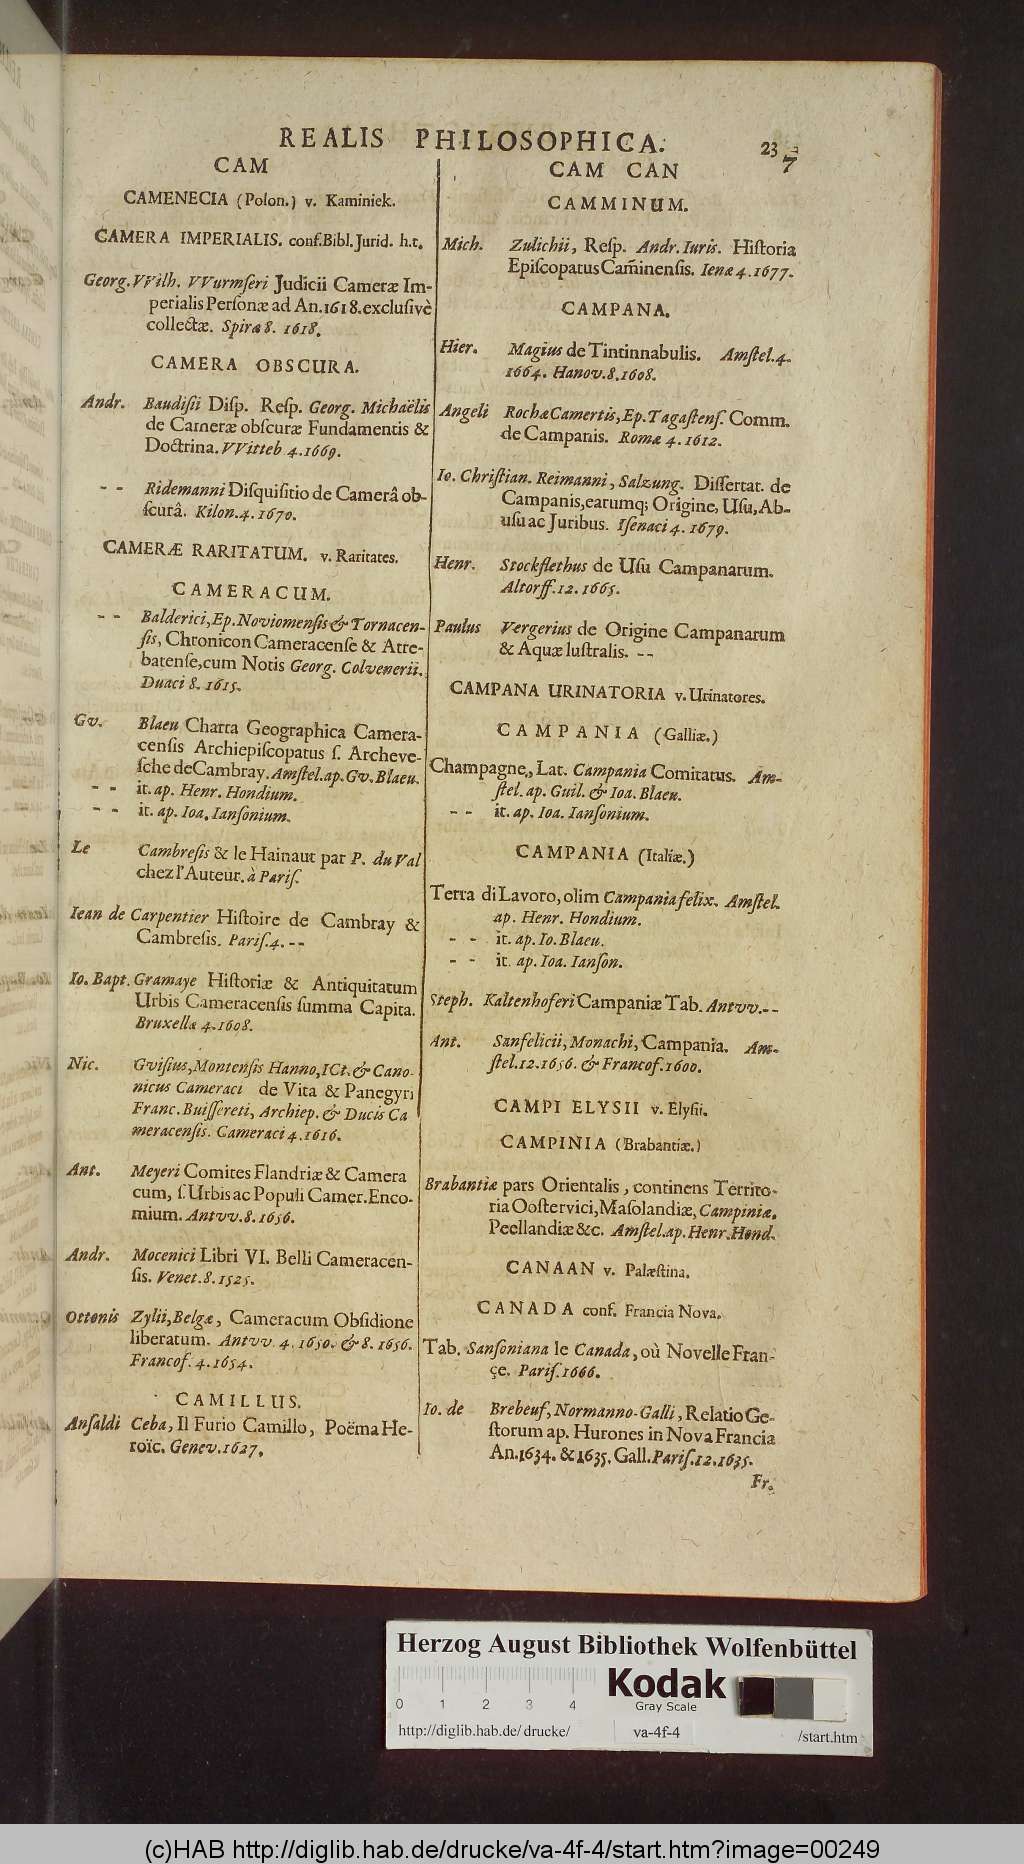 REALIS PHILOSOPHICA.
237
CAM
CAMENECIA (Polon.) v. Kaminiek.
CAMERA IMPERIALIS. conf. Bibl. Jurid. h.t.
Georg. VVilh. VVurmſeri Judicii Cameræ Im-
perialis Perſonæ ad An. 1618. excluſivè
collectæ. Spiræ 8. 1618.
CAMERA OBSCURA.
Andr. Baudiſii Diſp. Reſp. Georg. Michaëlis
de Cameræ obſcuræ Fundamentis &
Doctrina. VVitteb 4. 1669.
-- Ridemanni Diſquiſitio de Camerâ ob-
ſcurâ. Kilon. 4. 1670.
CAMERÆ RARITATUM. v. Raritates.
CAMERACUM.
-- Balderici, Ep. Noviomenſis & Tornacen-
ſis, Chronicon Cameracenſe & Atre-
batenſe, cum Notis Georg. Colvenerii.
Duaci 8. 1615.
Gv. Blaeu Charta Geographica Camera-
cenſis Archiepiſcopatus ſ. Archeve-
ſche de Cambray. Amſtel. ap. Gv. Blaeu.
-- it. ap. Henr. Hondium.
-- it. ap. Ioa. Ianſonium.
Le Cambreſis & le Hainaut par P. du Val
chez l'Auteur. à Pariſ.
Iean de Carpentier Hiſtoire de Cambray &
Cambreſis. Pariſ. 4. --
Io. Bapt. Gramaye Hiſtoriæ & Antiquitatum
Urbis Cameracenſis ſumma Capita.
Bruxellæ 4. 1608.
Nic. Gviſius, Montenſis Hanno, ICt. & Cano-
nicus Cameraci de Vita & Panegyri
Franc. Buiſſereti, Archiep. & Ducis Ca
meracenſis. Cameraci 4. 1616.
Ant. Meyeri Comites Flandriæ & Camera
cum, ſ. Urbis ac Populi Camer. Enco-
mium. Antvv. 8. 1656.
Andr. Mocenici Libri VI. Belli Cameracen-
ſis. Venet. 8. 1525.
Ottonis Zylii, Belgæ, Cameracum Obſidione
liberatum. Antvv 4. 1650. & 8. 1656.
Francof. 4. 1654.
CAMILLUS.
Anſaldi Ceba, Il Furio Camillo, Poëma He-
roïc. Genev. 1627.
CAM CAN
CAMMINUM.
Mich. Zulichii, Reſp. Andr. Iuris. Hiſtoria
Epiſcopatus Cam̃inenſis. Ienæ 4. 1677.
CAMPANA.
Hier. Magius de Tintinnabulis. Amſtel. 4.
1664. Hanov. 8. 1608.
Angeli Rocha Camertis, Ep. Tagaſtenſ. Comm.
de Campanis. Romæ 4. 1612.
Io. Chriſtian. Reimanni, Salzung. Diſſertat. de
Campanis, earumq; Origine, Uſu, Ab-
uſu ac Juribus. Iſenaci 4. 1679.
Henr. Stockflethus de Uſu Campanarum.
Altorff. 12. 1665.
Paulus Vergerius de Origine Campanarum
& Aquæ luſtralis. --
CAMPANA URINATORIA v. Urinatores.
CAMPANIA (Galliæ.)
Champagne, Lat. Campania Comitatus. Am-
ſtel. ap. Guil. & Ioa. Blaeu.
-- it. ap. Ioa. Ianſonium.
CAMPANIA (Italiæ.)
Terra di Lavoro, olim Campania felix. Amſtel.
ap. Henr. Hondium.
-- it. ap. Io. Blaeu.
-- it. ap. Ioa. Ianſon.
Steph. Kaltenhoferi Campaniæ Tab. Antvv. --
Ant. Sanfelicii, Monachi, Campania. Am-
ſtel. 12. 1656. & Francof. 1600.
CAMPI ELYSII v. Elyſii.
CAMPINIA (Brabantiæ.)
Brabantiæ pars Orientalis, continens Territo-
ria Ooſtervici, Maſolandiæ, Campiniæ,
Peellandiæ &c. Amſtel. ap. Henr. Hond.
CANAAN v. Palæſtina.
CANADA conf. Francia Nova.
Tab. Sanſoniana le Canada, où Novelle Fran-
çe. Pariſ. 1666.
Io. de Brebeuf, Normanno-Galli, Relatio Ge-
ſtorum ap. Hurones in Nova Francia
An. 1634. & 1635. Gall. Pariſ. 12. 1635.
Fr.
Herzog August Bibliothek Wolfenbüttel
0 1 2 3 4
Kodak
Gray Scale
http://diglib.hab.de/drucke/ va-4f-4 /start.htm
(c)HAB http://diglib.hab.de/drucke/va-4f-4/start.htm?image=00249